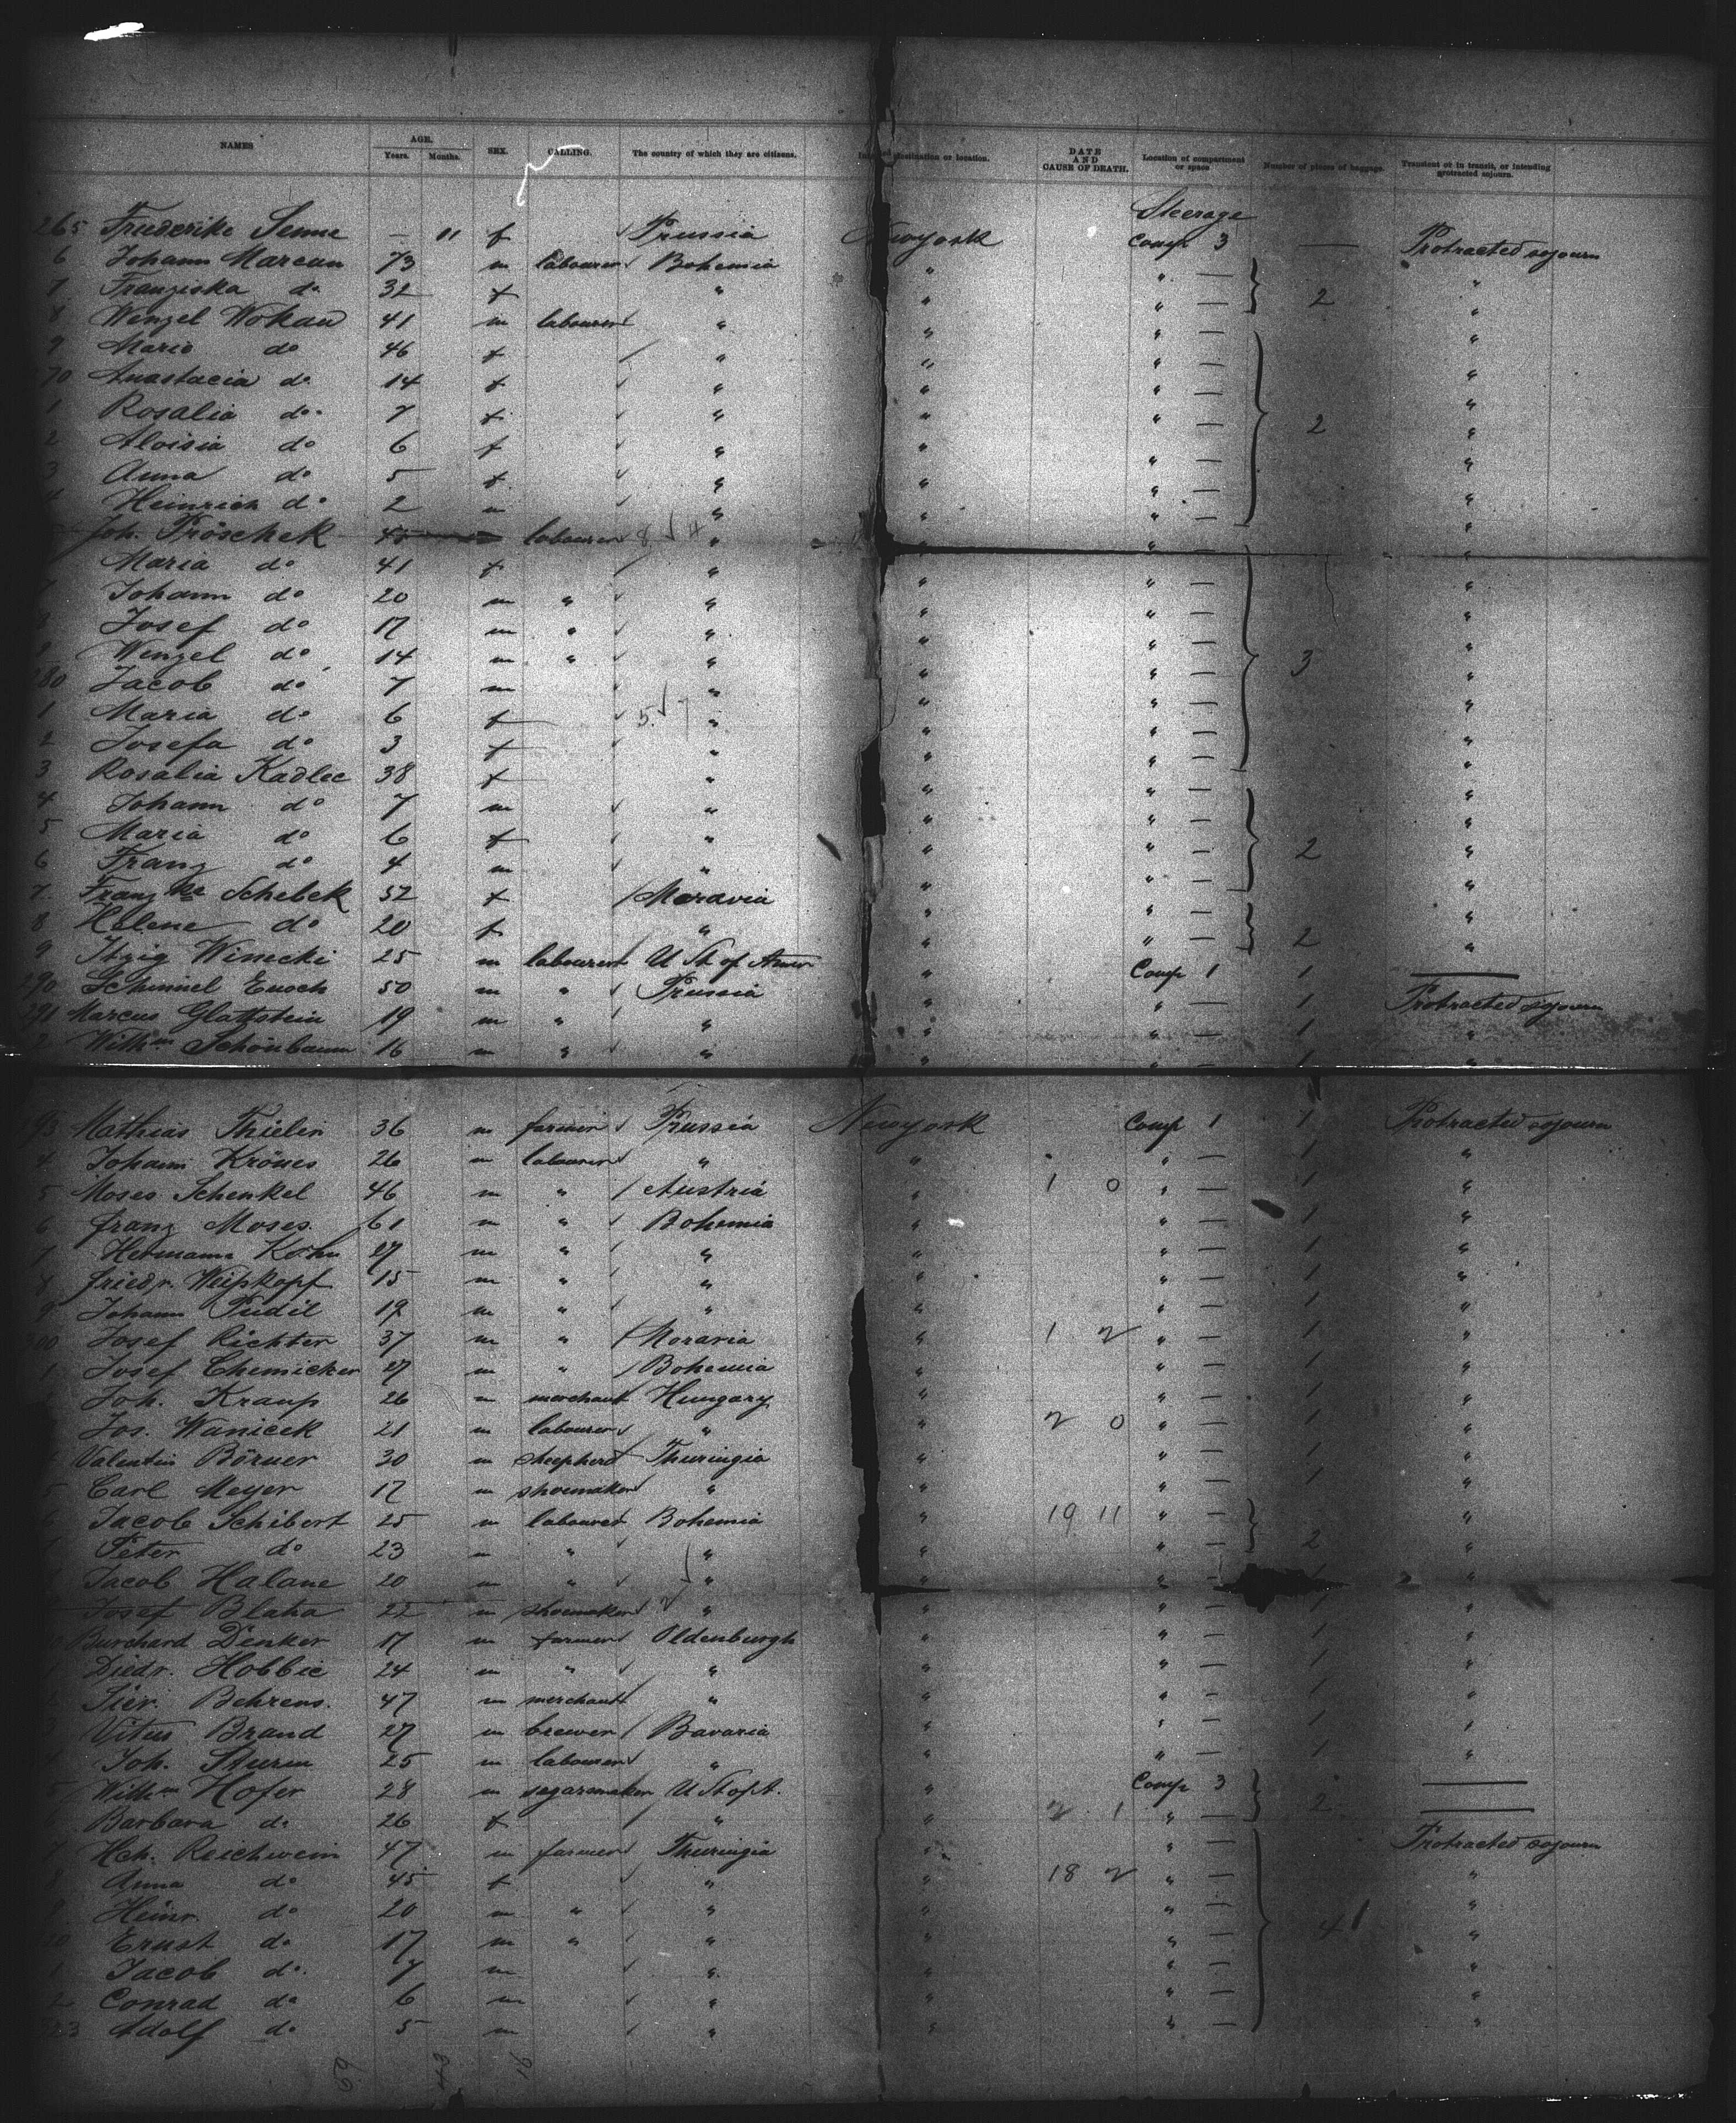 NAMES AGE. Years. Months. SEX. CALLING. The country of which they are citizens. destination or location. DATE AND CAUSE OF DEATH. Location of compartment or space Number of pieces of baggage. Transient or in transit, or intending protracted sojourn.
Steerage
265 Friederike Senne — 11 f Prussia Newyork Comp 3 — Protracted sojourn
6 Johann Marcan 73 m labourer Bohemia " " — "
7 Franziska do 32 f " " " — 2 "
8 Wenzel Wokau 41 m labourer " " " — "
9 Marie do 46 f " " " — "
70 Anastacia do 14 f " " " — "
1 Rosalia do 7 f " " " — 2 "
2 Aloisia do 6 f " " " — "
3 Anna do 5 f " " " — "
4 Heinrich do 2 m " " " — "
Joh. Pröschek 45 labourer 8 4 " " " "
Maria do 41 f " " " — "
7 Johann do 20 m " " " " — "
Josef do 17 m " " " " — "
Wenzel do 14 m " " " " — 3 "
280 Jacob do 7 m " " " — "
1 Maria do 6 f 5 7 " " " — "
2 Josefa do 3 f " " " — "
3 Rosalia Kadlec 38 f " " " — "
4 Johann do 7 m " " " — "
5 Maria do 6 f " " " — 2 "
6 Franz do 4 m " " " — "
7. Franzka Schebek 52 f Moravia " " — "
8 Helene do 20 f " " " — 2 "
9 Itzig Winecki 25 m labourer U St of Amer " Comp 1 1 —
290 Schimmel Enoch 50 m " Prussia " " — 1 Protracted sojourn
291 Marcus Glattstein 19 m " " " " — 1 "
2 Wilhm Schönbaum 16 m " " " " — 1 "
293 Mathias Thielen 36 m farmer Prussia Newyork Comp 1 1 Protracted sojourn
4 Johann Krönes 26 m labourer " " " — 1 "
5 Moses Schenkel 46 m " Austria " 1 0 " — 1 "
6 Franz Moses. 61 m " Bohemia " " — 1 "
7 Hermann Kohn 27 m " " " " — 1 "
8 Friedr. Weißkopf 15 m " " " " — 1 "
9 Johann Pudil 19 m " " " " — 1 "
300 Josef Richter 37 m " Moravia " 1 2 " — 1 "
1 Josef Chemicker 27 m " Bohemia " " — 1 "
Joh. Kraup 26 m merchant Hungary " " — 1 "
Jos. Wanicek 21 m labourer " " 2 0 " — 1 "
Valentin Börner 30 m sheepherd Thuringia " " — 1 "
5 Carl Meyer 17 m shoemaker " " " — 1 "
Jacob Schibort 25 m labourer Bohemia " 19 11 " — "
Peter do 23 m " " " " — 2 "
Jacob Halane 20 m " " " " — 1 "
Josef Blaha 22 m shoemaker " " " — 1 "
Burchard Denker 17 m farmer Oldenburgh " " — 1 "
Diedr. Hobbie 24 m " " " " — 1 "
Sier. Behrens. 47 m merchant " " " — 1 "
3 Vitus Brand 27 m brewer Bavaria " " — 1 "
Joh. Sturm 25 m labourer " " " — 1 "
5 Wilhm Hofer 28 m segarmaker U St of A. " Comp 3 —
Barbara do 26 f " " 2 1 " — 2 —
7 Hch. Reichwein 47 m farmer Thuringia " " — Protracted sojourn
8 Anna do 45 f " " 18 2 " — "
9 Heinr. do 20 m " " " " — "
20 Ernst do 17 m " " " " — 4 1 "
1 Jacob do. 7 m " " " — "
2 Conrad do 6 m " " " — "
23 Adolf do 5 m " " " — "